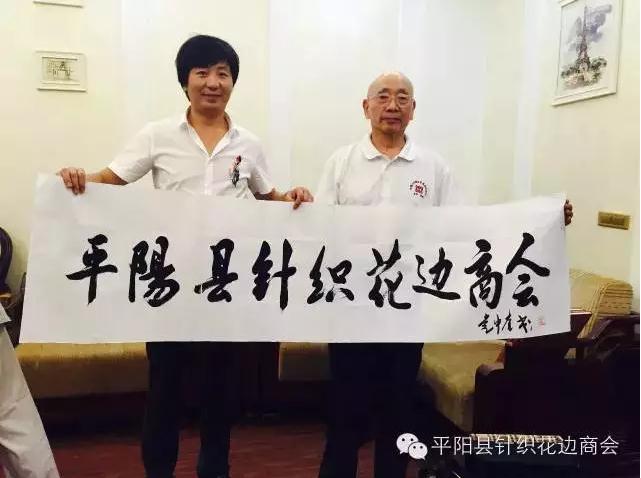 平陽县针织花边商会
平阳县针织花边商会